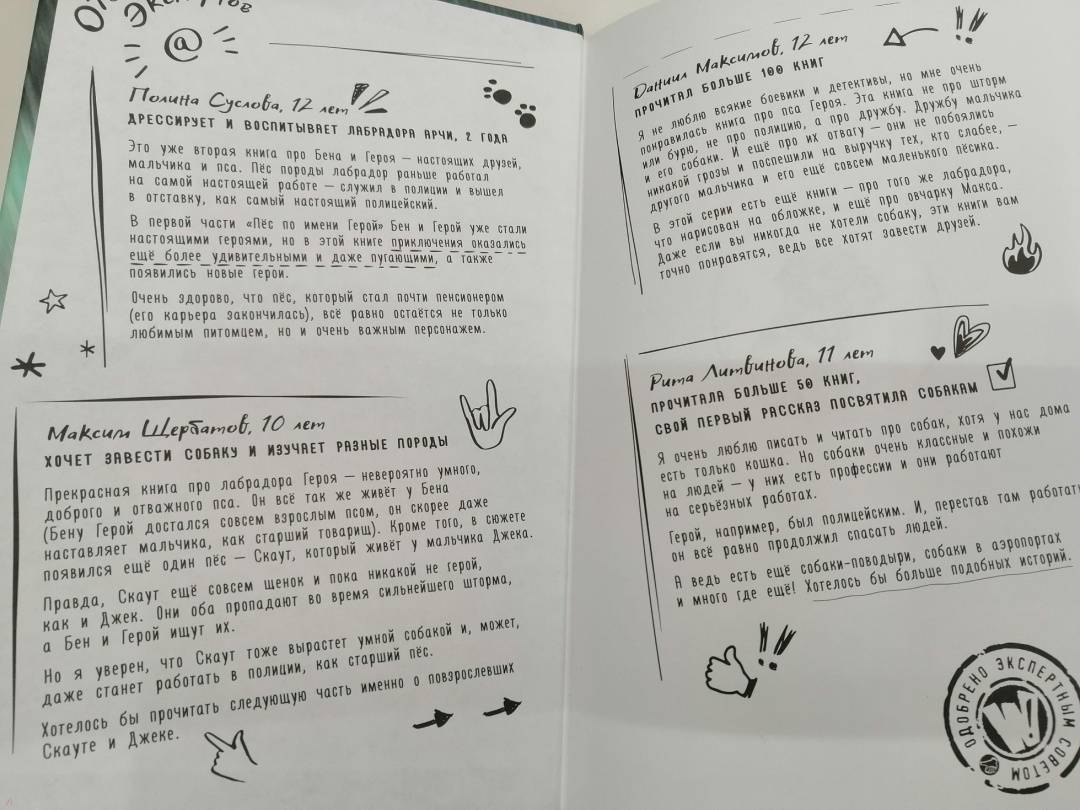 Экспертов
@
Полина Суслова, 12 лет
ДРЕССИРУЕТ И ВОСПИТЫВАЕТ ЛАБРАДОРА АРЧИ, 2 ГОДА
Это уже вторая книга про Бена и Героя — настоящих друзей,
мальчика и пса. Пёс породы лабрадор раньше работал
на самой настоящей работе — служил в полиции и вышел
в отставку, как самый настоящий полицейский.
В первой части «Пёс по имени Герой» Бен и Герой уже стали
настоящими героями, но в этой книге приключения оказались
ещё более удивительными и даже пугающими, а также
появились новые герои.
Очень здорово, что пёс, который стал почти пенсионером
(его карьера закончилась), всё равно остаётся не только
любимым питомцем, но и очень важным персонажем.
Максим Щербатов, 10 лет
ХОЧЕТ ЗАВЕСТИ СОБАКУ И ИЗУЧАЕТ РАЗНЫЕ ПОРОДЫ
Прекрасная книга про лабрадора Героя — невероятно умного,
доброго и отважного пса. Он всё так же живёт у Бена
(Бену Герой достался совсем взрослым псом, он скорее даже
наставляет мальчика, как старший товарищ). Кроме того, в сюжете
появился ещё один пёс — Скаут, который живёт у мальчика Джека.
Правда, Скаут ещё совсем щенок и пока никакой не герой,
как и Джек. Они оба пропадают во время сильнейшего шторма,
а Бен и Герой ищут их.
Но я уверен, что Скаут тоже вырастет умной собакой и, может,
даже станет работать в полиции, как старший пёс.
Хотелось бы прочитать следующую часть именно о повзрослевших
Скауте и Джеке.
Даниил Максимов, 12 лет
ПРОЧИТАЛ БОЛЬШЕ 100 КНИГ
Я не люблю всякие боевики и детективы, но мне очень
понравилась книга про пса Героя. Эта книга не про шторм
или бурю, не про полицию, а про дружбу. Дружбу мальчика
и его собаки. И ещё про их отвагу — они не побоялись
никакой грозы и поспешили на выручку тех, кто слабее, —
другого мальчика и его ещё совсем маленького пёсика.
В этой серии есть ещё книги — про того же лабрадора,
что нарисован на обложке, и ещё про овчарку Макса.
Даже если вы никогда не хотели собаку, эти книги вам
точно понравятся, ведь все хотят завести друзей.
Рита Литвинова, 11 лет
ПРОЧИТАЛА БОЛЬШЕ 50 КНИГ,
СВОЙ ПЕРВЫЙ РАССКАЗ ПОСВЯТИЛА СОБАКАМ
Я очень люблю писать и читать про собак, хотя у нас дома
есть только кошка. Но собаки очень классные и похожи
на людей — у них есть профессии и они работают
на серьёзных работах.
Герой, например, был полицейским. И, перестав там работать
он всё равно продолжил спасать людей.
А ведь есть ещё собаки-поводыри, собаки в аэропортах
и много где ещё! Хотелось бы больше подобных историй.
ОДОБРЕНО ЭКСПЕРТНЫМ СОВЕТОМ
W!